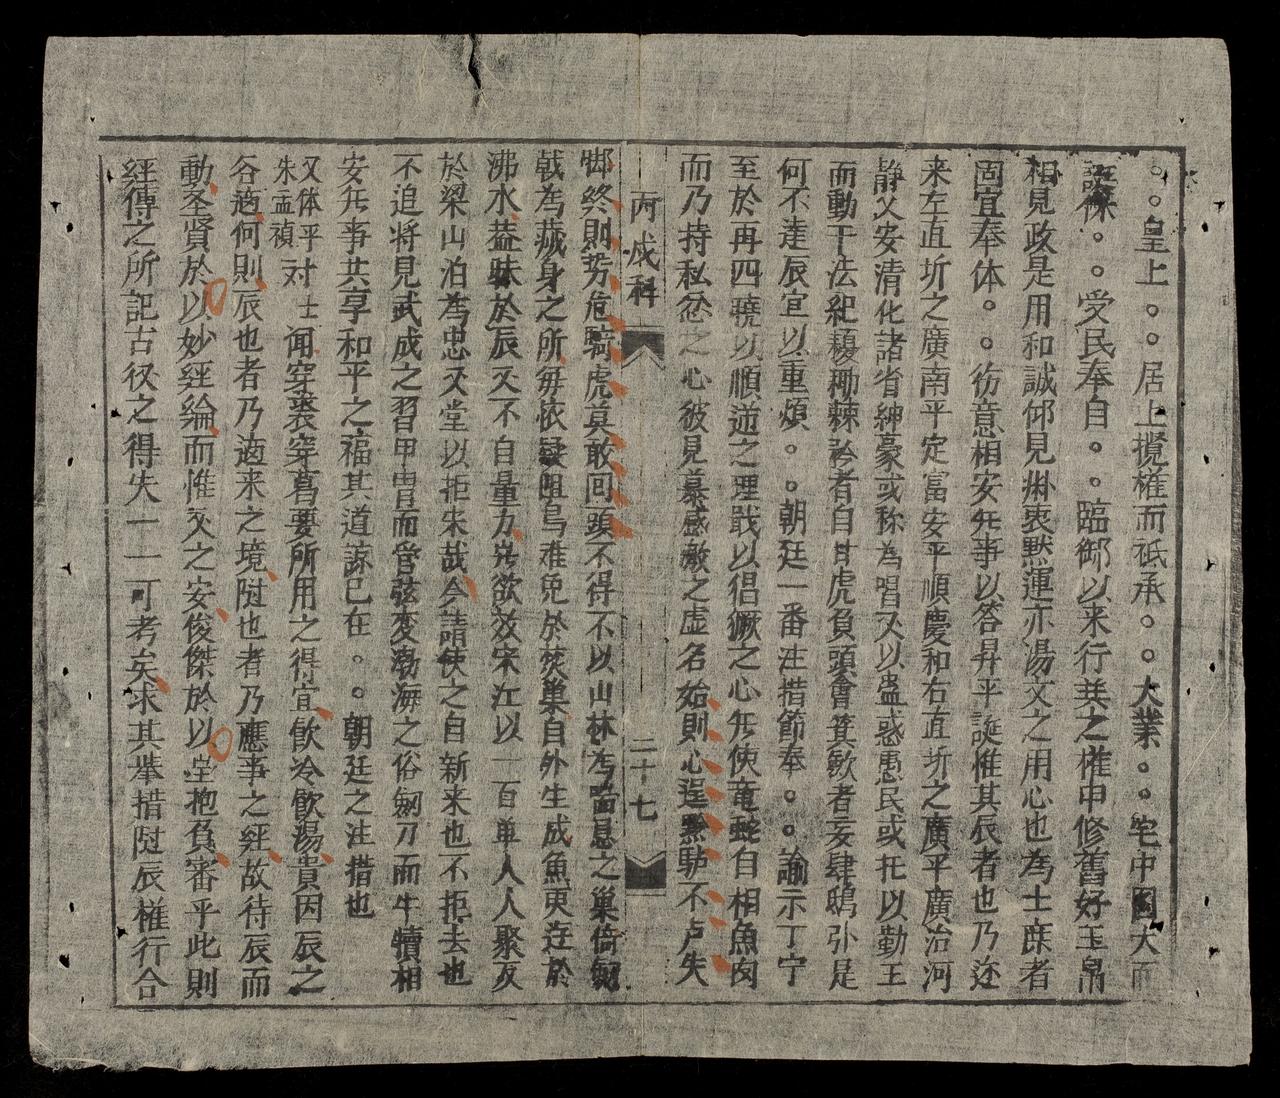 。。皇上。。居上攬權而祗承。。大業。。宅中圖大而
。。受民奉自。。臨御以来行其之權申修舊好玉帛
相見政是用和誠仰見淵衷默運亦湯文之用心也為士庶者
固宜奉体。。徬意相安無事以答昇平誕惟其辰者也乃迩
来左直圻之廣南平定富安平順慶和右直圻之廣平廣治河
静乂安清化諸省紳豪或称為唱义以蛊惑愚民或托以勤王
而動干法紀耰耡棘矜者自甘虎負頭會箕歛者妄肆鴟張是
何不達辰宜以重煩。。朝廷一番注措節奉。。諭示丁宁
至於再四曉以順逆之理戢以倡獗之心無使竜蛇自相魚肉
而乃持私忿之心彼見慕感激之虚名始則心逞黔驴不卢失
丙戌科
二十七
終則势危騎虎莫敢回頭不得不以山林為喘息之巢倚劒
戟為藏身之所毎依疑阻烏难免於焚巢自外生成魚更迯於
沸水葢昧於辰义不自量力先欲效宋江以一百單人人聚众
於梁山泊為忠义堂以拒朱故今請使之自新来也不拒去也
不追将見武成之習甲冑而管弦变渤海之俗劒刀而牛犢相
安無事共享和平之福其道諒已在。。朝廷之注措也
又体平对士闻穿裘穿葛要所用之得宜飲冷飲湯貴因辰之
朱孟禎
谷適何則辰也者乃適来之境愆也者乃應事之經故待辰而
動圣賢於以妙經綸而惟义之安俊傑於以堂抱負審乎此則
經傳之所記古役之得失一一可考矣求其举措愆辰權行合